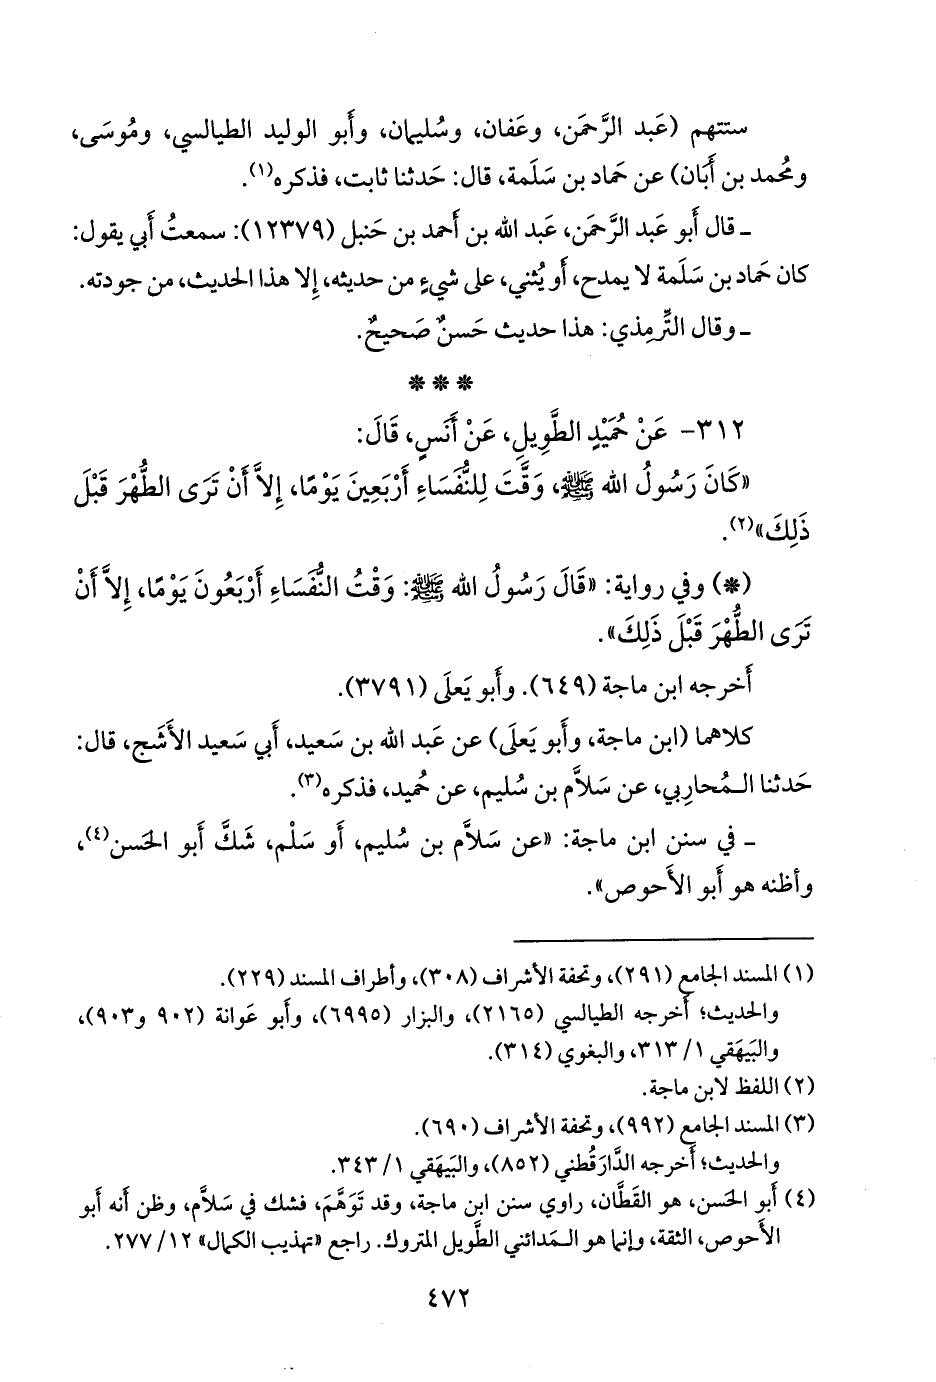 ستتهم (عَبد الرَّحمَن، وعَفان، وسُليمان، وأَبو الوليد الطيالسي، ومُوسَى،
ومُحمد بن أَبَان) عن حَماد بن سَلَمة، قال: حَدثنا ثابت، فذكره(١).
ـ قال أَبو عَبد الرَّحمَن، عَبد الله بن أَحمد بن حَنبل (١٢٣٧٩): سمعتُ أَبي يقول:
كان حَماد بن سَلَمة لا يمدح، أَو يُثني، على شيءٍ من حديثه، إِلا هذا الحديث، من جودته.
ـ وقال التِّرمِذي: هذا حديث حَسنٌ صَحيحٌ.
* * *
٣١٢- عَنْ حُمَيْدٍ الطَّوِيلِ، عَنْ أَنَسٍ، قَالَ:
«كَانَ رَسُولُ الله ﷺ، وَقَّتَ لِلنُّفَسَاءِ أَرْبَعِينَ يَوْمًا، إِلاَّ أَنْ تَرَى الطُّهْرَ قَبْلَ
ذَلِكَ»(٢).
(*) وفي رواية: «قَالَ رَسُولُ الله ﷺ: وَقْتُ النُّفَسَاءِ أَرْبَعُونَ يَوْمًا، إِلاَّ أَنْ
تَرَى الطُّهْرَ قَبْلَ ذَلِكَ».
أَخرجه ابن ماجة (٦٤٩). وأَبو يَعلَى (٣٧٩١).
كلاهما (ابن ماجة، وأَبو يَعلَى) عن عَبد الله بن سَعيد، أَبي سَعيد الأَشَج، قال:
حَدثنا الـمُحاربي، عن سَلاَّم بن سُليم، عن حُميد، فذكره(٣).
ـ في سنن ابن ماجة: «عن سَلاَّم بن سُليم، أَو سَلْم، شَكَّ أَبو الحَسن(٤)،
وأَظنه هو أَبو الأَحوص».
(١) المسند الجامع (٢٩١)، وتحفة الأشراف (٣٠٨)، وأطراف المسند (٢٢٩).
والحديث؛ أَخرجه الطيالسي (٢١٦٥)، والبزار (٦٩٩٥)، وأَبو عَوانة (٩٠٢ و٩٠٣)،
والبَيهَقي ١/ ٣١٣، والبغوي (٣١٤).
(٢) اللفظ لابن ماجة.
(٣) المسند الجامع (٩٩٢)، وتحفة الأشراف (٦٩٠).
والحديث؛ أَخرجه الدَّارَقُطني (٨٥٢)، والبَيهَقي ١/ ٣٤٣.
(٤) أَبو الحَسن، هو القَطَّان، راوي سنن ابن ماجة، وقد تَوَهَّمَ، فشك في سَلاَّم، وظن أَنه أَبو
الأَحوص، الثقة، وإِنما هو الـمَدائني الطَّويل المتروك. راجع «تهذيب الكمال» ١٢/ ٢٧٧.
٤٧٢